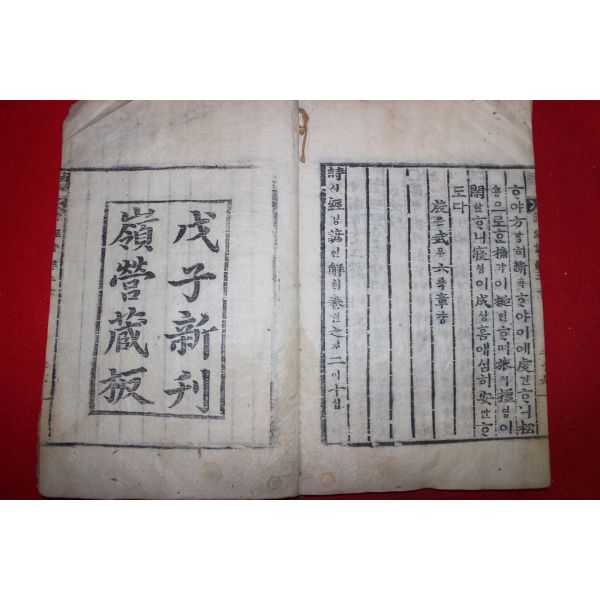 ᄒᆞ야方방혀斲착ᄒᆞ야이에虔건ᄒᆞ니松
숑으로ᄒᆞᆫ桷각이梴연ᄒᆞ며旅려楹영이
閑한ᄒᆞ니寢침이成셩홈애심히安안ᄒᆞ
도다
殷은武무六륙章쟝
詩시經경諺언解ᄒᆡ卷권之지二이十십
戊子新刊
嶺營藏板